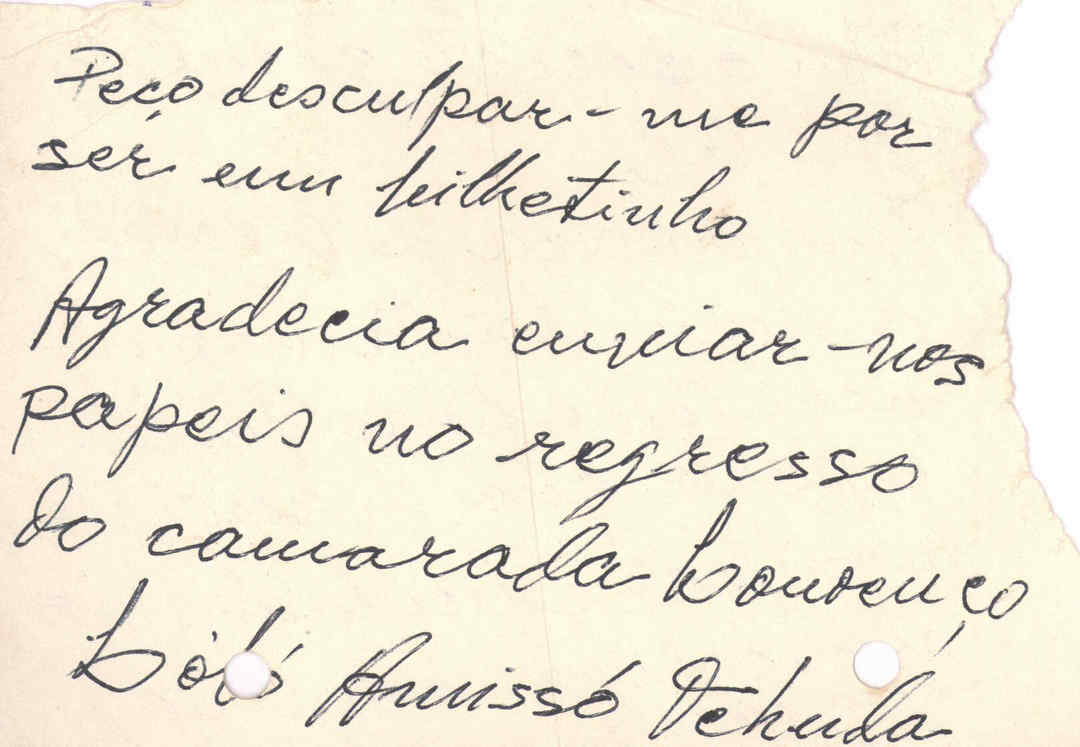 Peço desculpar-me por
ser um bilhetinho
Agradecia enviar-nos
papeis no regresso
do camarada Lourenço